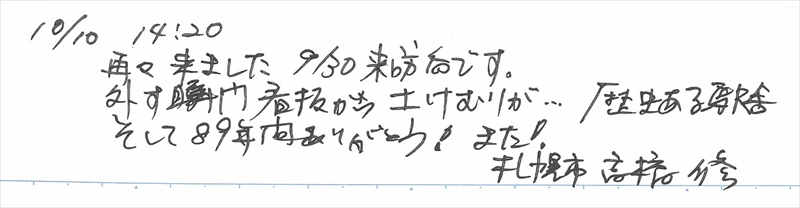 10/10 14:20
再々来ました 9/30来訪台です。
外す瞬間 看板から土けむりが… 歴史ある駅舎
そして89年間ありがとう！また！
札幌市 高橋 修